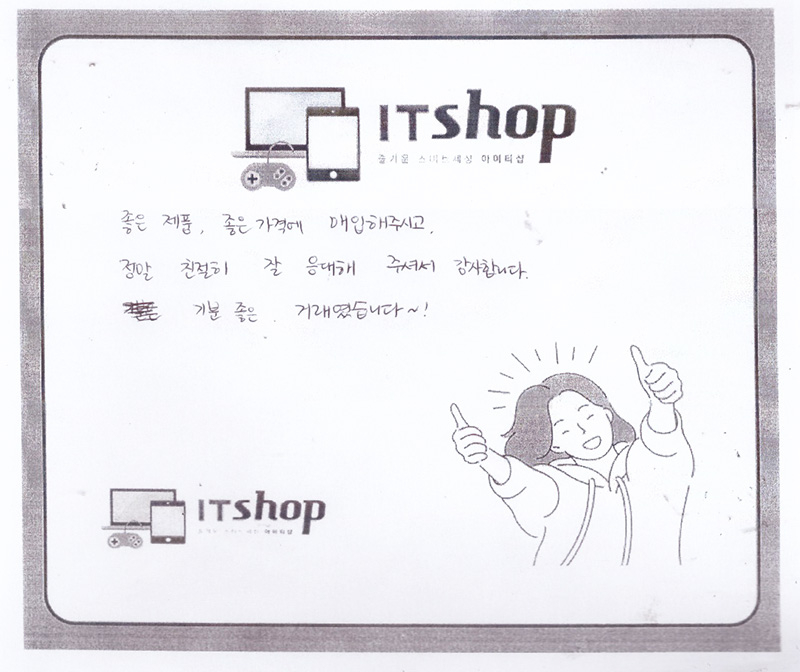 ITshop
즐거운 스마트세상 아이티샵
좋은 제품, 좋은 가격에 매입해주시고,
정말 친절히 잘 응대해 주셔서 감사합니다.
기분 좋은 거래였습니다~!
ITshop
아이티샵